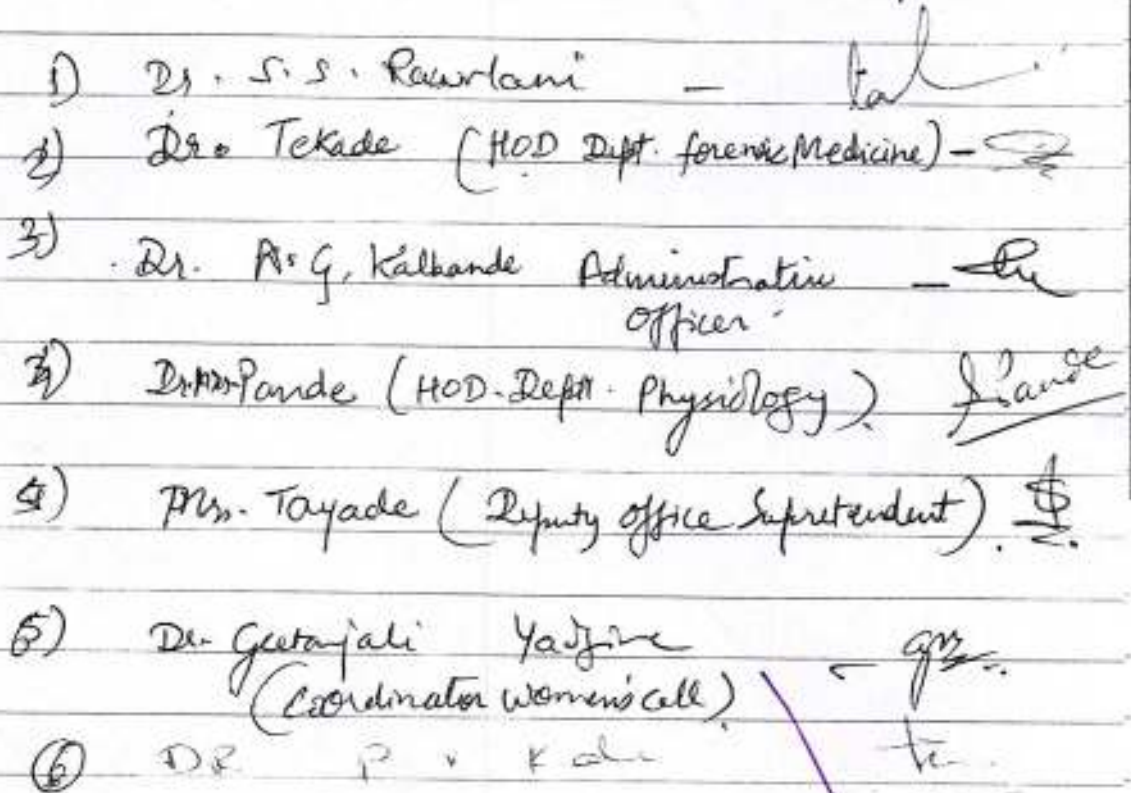 1) Dr. S. S. Rawlani -
2) Dr. Tekade (HOD Dept. forensic Medicine) -
3) Dr. A. G. Kalbande Administrative -
officer.
4) Dr. Mrs. Pande (HOD. Deptt. Physiology). Pande
Mrs. Tayade (Deputy office Supretendent).
5) Dr. Geetanjali -
(Coordinator women's cell).
6 DR P V